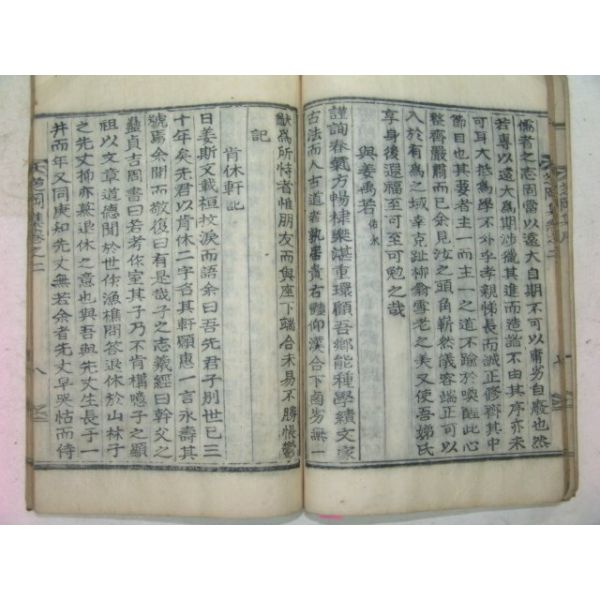 儒者之志固當以遠大自期不可以庸劣自廢也然
若專以遠大爲期涉獵其進而造詣不由其序亦未
可耳大抵爲學不外乎孝親悌長而誠正修齊其中
節目也其要者主一而主一之道不踰於喚醒此心
整齊嚴肅而已余見汝之頭角嶄然儀容端正可以
入於有爲之域幸克趾柳翁雪老之美又使吾娣氏
享身後還福至可至可勉之哉
與姜禹若 佑永
謹詢春氣方暢棣樂湛重環顧吾鄕能種學績文家
古法而人古道者孰啻貴右豔仰漢合下菌劣無一
猷爲所恃者惟朋友而與座下端合未易不勝悵鬱
記
肯休軒記
日姜斯文載桓抆淚而語余曰吾先君子别世已三
十年矣先君以肯休二字名其軒願惠一言永壽其
號焉余聞而敬復曰有是哉子之志義經曰幹父之
蠱貞吉周書曰若考作室其子乃不肯構噫子之顯
祖以文章道德聞於世休漁樵問答退休於山林子
之先丈抑亦慕退休之意也與吾與先丈生長于一
井而年又同庚知先丈無若余者先丈早哭怙而侍